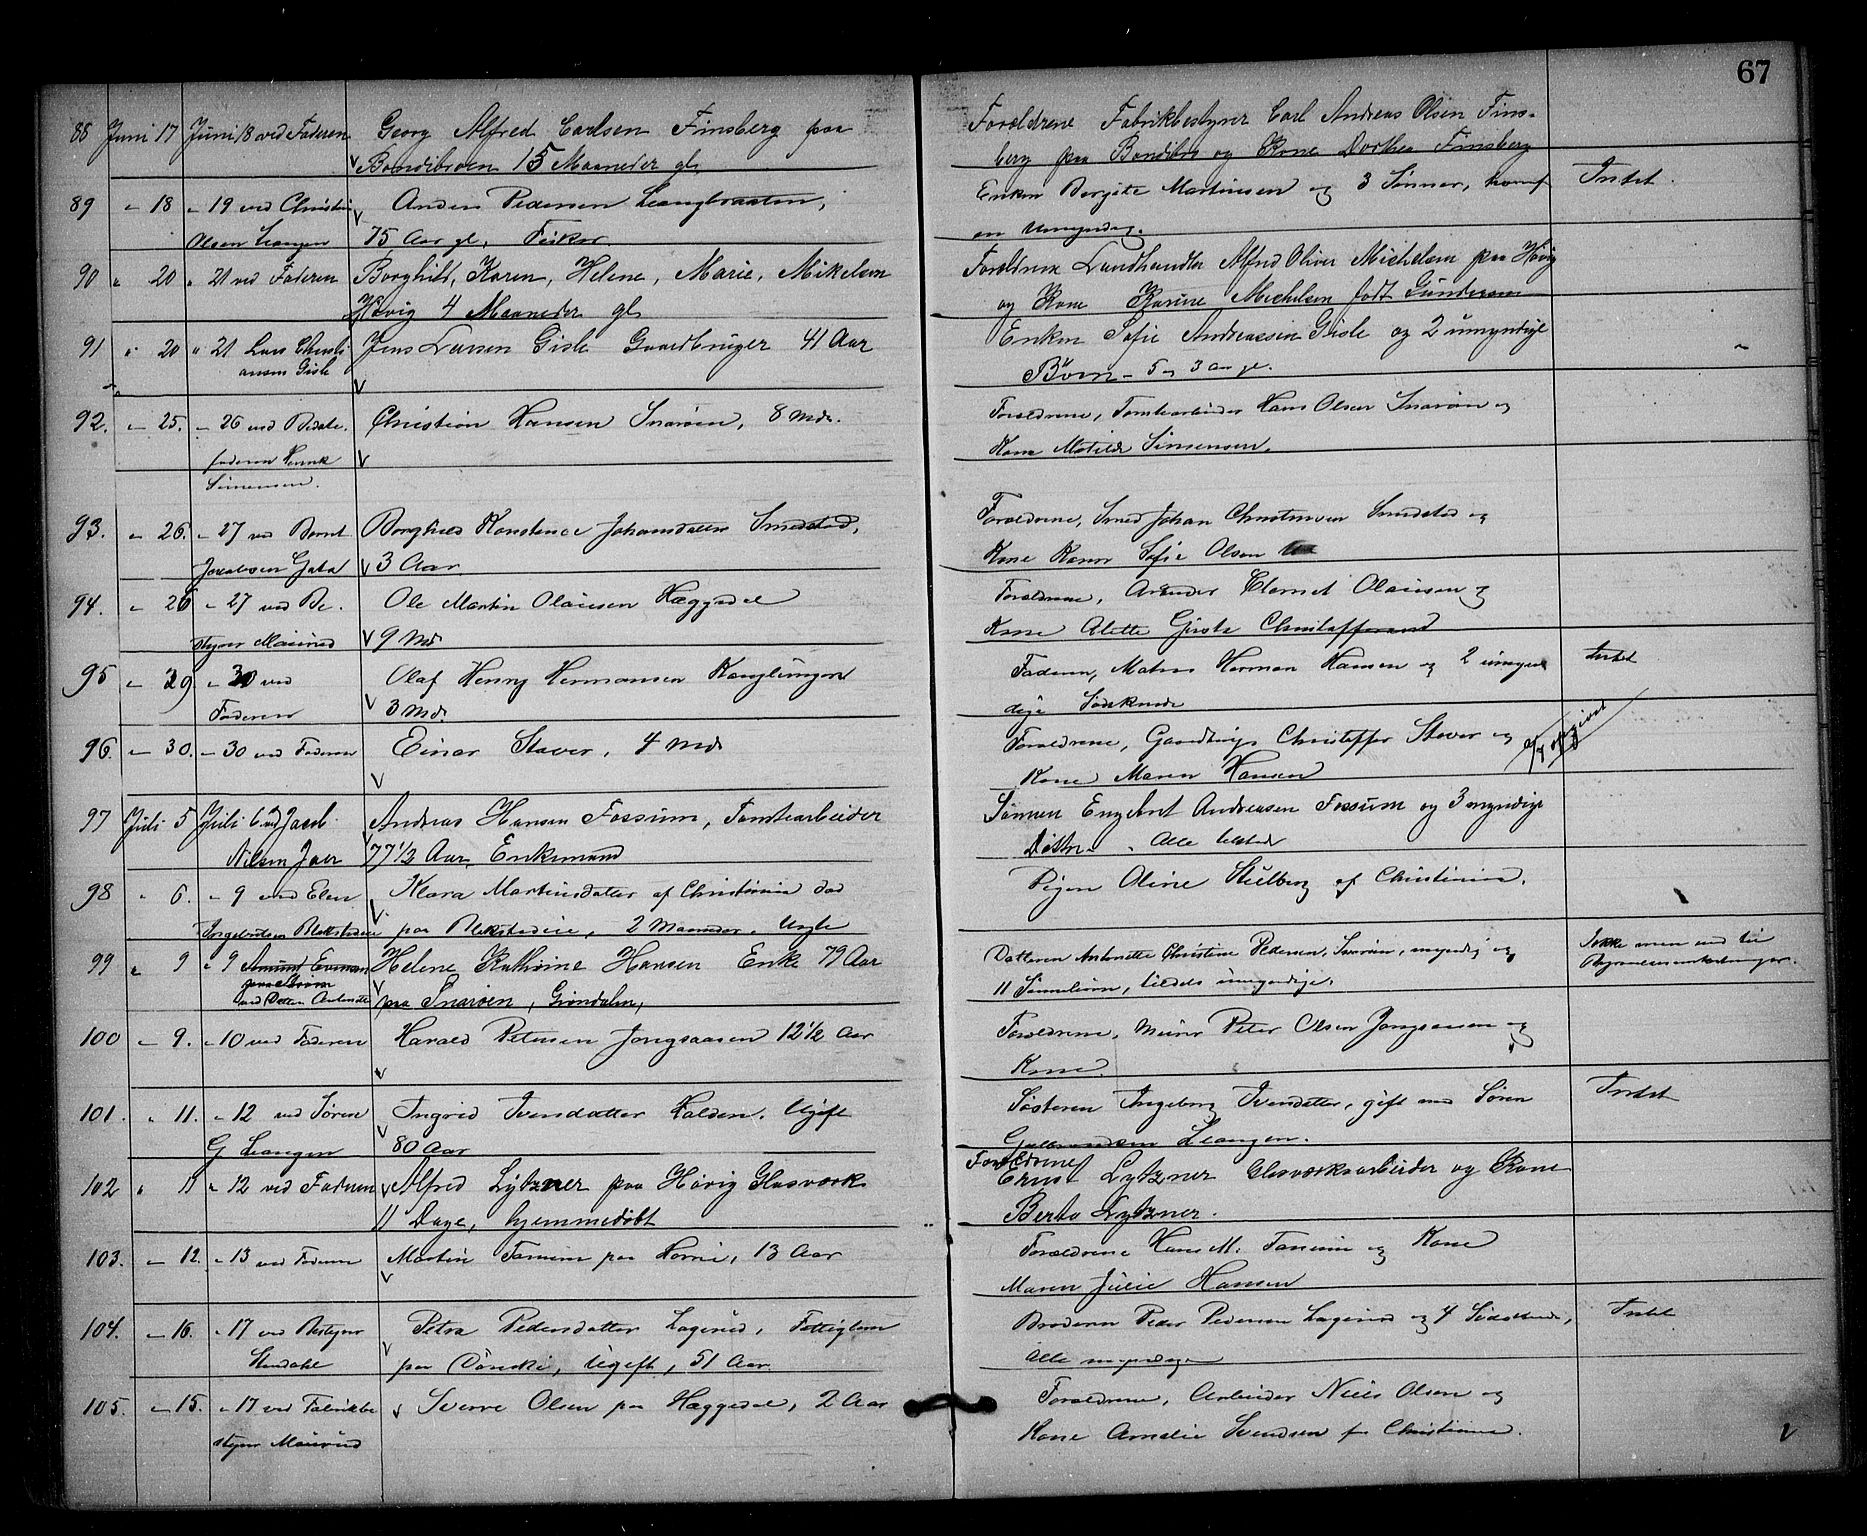 67
88 Juni 17 Juni 18 ved Faderen Georg Alfred Carlsen Finsberg paa Forældrene Fabrikbestyrer Carl Andreas Olsen Fins-
Bondibroen 15 Maaneder gl. berg paa Bondibro og Kone Dorthea Finsberg
89 " 18 " 19 ved Christi Anders Pedersen Leangbraaten, Enken Bergite Mortinsen og 3 Sønner, hvoraf Intet.
Olsen Leangen 75 Aar gl, Fisker. en Umyndig.
90 " 20 " 21 ved Faderen Borghild, Karen, Helene, Marie, Mikelsen Forældrene Landhandler Alfred Oliver Michelsen paa Høvig
Høvig 4 Maaneder gl og Kone Karine Michelsen født Gundersen
91 " 20 " 21 Lars Christi Jens Larsen Gisle Gaardbruger 41 Aar Enken Sofie Andreassen Gisle og 2 umyndige
ansen Gisle Børn - 5 og 3 Aar gl.
92. " 25. " 26 ved Beste- Christian Hansen Snarøen, 8 Mdr. Forældrene, Tomtearbeider Hans Olsen Snarøen og
faderen Henrik Kone Matilde Simensen.
Simensen.
93. " 26. " 27 ved Bernt Borghild Konstance Johansdatter Smedstad, Forældrene, Smed Johan Christensen Smedstad og
Jacobsen Gata 3 Aar Kone Karen Sofie Olsen
94. " 26 " 27 ved Be- Ole Martin Olausen Hæggedal Forældrene, Arbeider Clemet Olausen og
styrer Mourud 9 Mdr Kone Alette Gusta Christoffersen
95 " 29 " 30 ved Olaf Henry Hermansen Kanglungen Faderen, Matros Herman Hansen og 2 umyn Intet
Faderen 3 Mdr dige Sødskende
96. " 30. " 30 ved Faderen Einar Staver, 4 Mdr Forældrene, Gaardbruger Christoffer Staver og opgivet
Kone Maren Hansen
97 Juli 5 Juli 6 ved Jacob Andreas Hansen Fossum, Tomtearbeider Sønnen Engebret Andreasen Fossum og 3 myndige
Nilsen Jaer 77 1/2 Aar, Enkemand Døttre - Alle tilstede
98 " 6. " 9 ved Elen Klara Martinsdatter af Christiania død Pigen Oline Stulberg af Christiania.
Ingebretsen paa , 2 Maaneder. Uægte
99 " 9 " 9 Helene Kathrine Hansen Enke 79 Aar Datteren Antonette Christine Pedersen, Snarøen, myndig og Ikke mere end til
ved Datter Antonette paa Snarøen, Grøndalen, 11 Sønnebørn, tildels umyndige. Begravelsesomkostninger.
100 " 9. " 10 ved Faderen Harald Petersen Jongsaasen 12 1/2 Aar Forældrene, Murer Peter Olsen Jongsaasen og
Kone.
101. " 11. " 12 ved Søren Ingrid Iversdatter Holden. Ugift Søsteren Ingeborg Iversdatter, gift med Søren Intet
G Leangen 80 Aar Gulbrandsen Leangen.
102 " 11 " 12 ved Faderen Alfred Lytzner paa Høvig Glasværk Forældrene Ernst Lytzner Glasværksarbeider og Kone
11 Dage, hjemmedøbt Berta Lytzner.
103. " 12. " 13 ved Faderen Martin Tanum paa Horni, 13 Aar Forældrene Hans M. Tanum og Kone
Maren Julie Hansen
104. " 16. " 17 ved Bestyrer Petra Pedersdatter Lagerud, Fattiglem Broderen Peder Pedersen Lagerud og 4 Sødskende, Intet
Stendahl paa Dønski, Ugift, 51 Aar. Alle myndige
105. " 15. " 17 ved Fabrikbe Sverre Olsen paa Hæggedal, 2 Aar Forældrene, Arbeider Niels Olsen og
styrer Mourud Kone Amalie Svendsen fra Christiania.